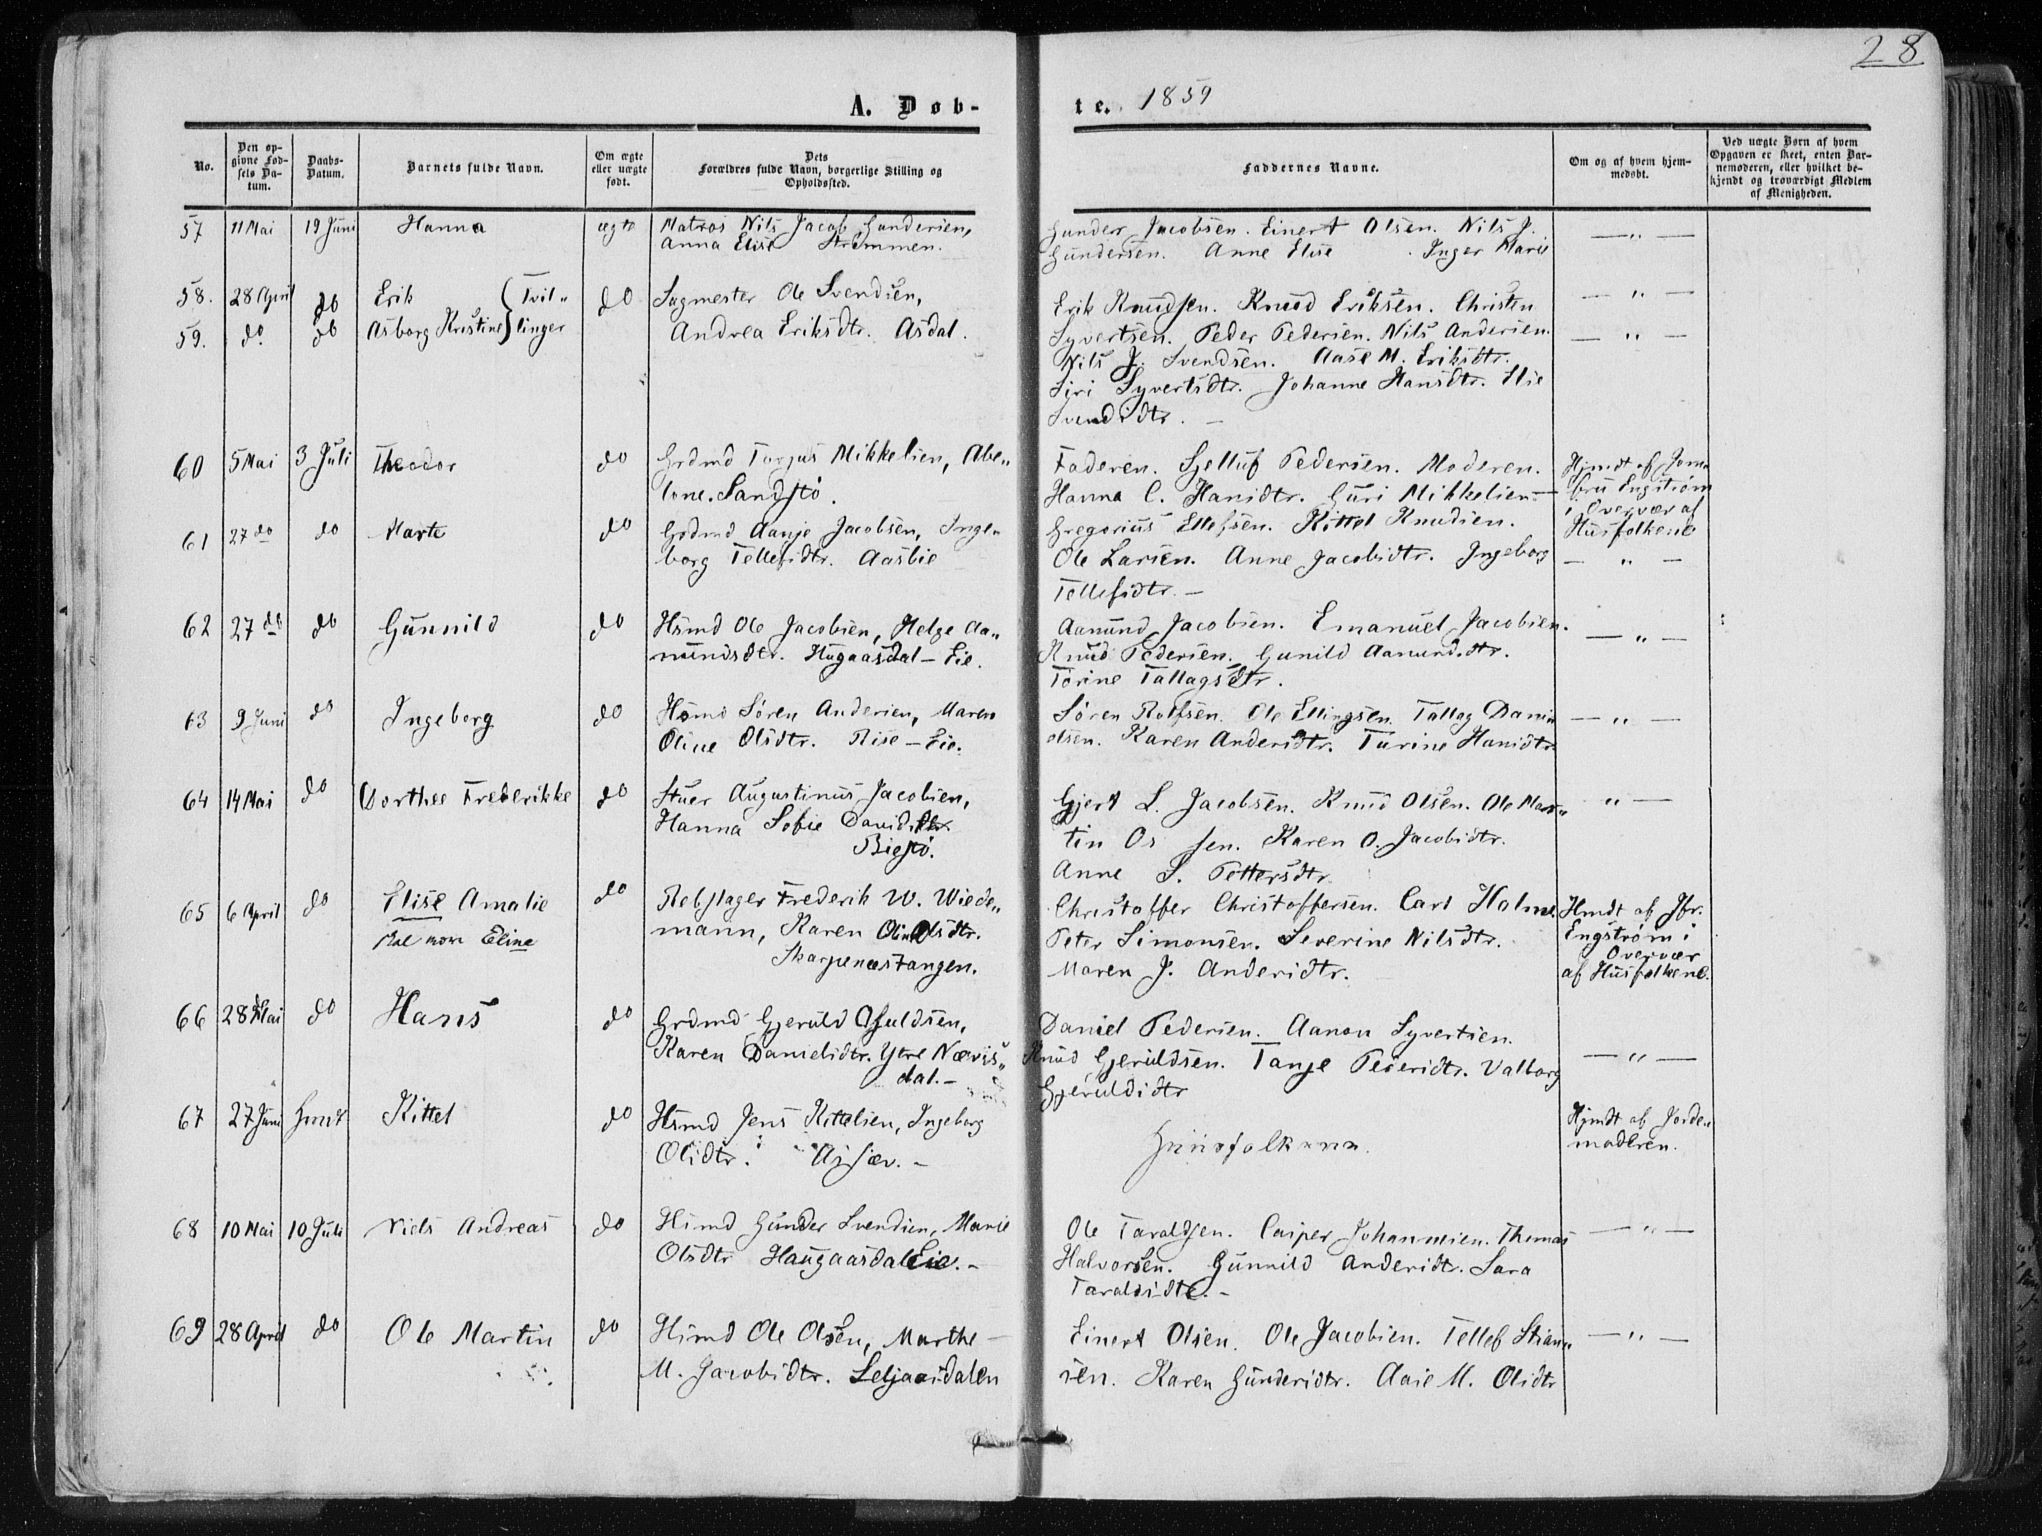 28
A. Døb-
te. 1859
No.
Den op-
givne Fød-
sels Da-
tum.
Daabs-
Datum.
Barnets fulde Navn.
Om ægte
eller uægte
født.
Dets
Forældres fulde Navn, borgerlige Stilling og
Opholdssted.
Faddernes Navne.
Om og af hvem hjem-
medøbt.
Ved uægte Børn af hvem
Opgaven er skeet, enten Bar-
nemoderen, eller hvilket be-
kjendt og troværdigt Medlem
af Menigheden.
57 11 Mai 19 Juni Hanna ægte Matros Nils Jacob Gundersen,
Anna Elise Strømmen.
Gunder Jacobsen. Einert Olsen. Nils J.
Gundersen. Anne Elise . Inger Marie
— „ —
58. 28 April do Erik (Tvil„ do Sagmester Ole Svendsen,
59. do. do Asborg Kristine) linger Andrea Eriksdtr. Asdal.
Erik Knudsen. Knud Eriksen. Christen
Syvertsen. Peder Pedersen. Nils Andersen.
Nils J. Svendsen. Aase M. Eriksdtr.
Siri Syvertsdtr. Johanne Hansdtr. Elie
Svendsdtr. —
— „ —
— „ —
60 5 Mai 3 Juli Theodor do Grdmd Torjus Mikkelsen, Abe„
lone. Sandstø.
Faderen. Gjelluf Pedersen. Moderen.
Hanna C. Hansdtr. Guri Mikkelsen—
Hjmdt af Jom„
fru Engstrøm
i Overvær af
Husfolkene
61 27 do do Marte do Grdmd Aanje Jacobsen, Inge„
borg Tellefsdtr. Aasbie
Gregorius Ellefsen. Kittel Knudsen.
Ole Larsen. Anne Jacobsdtr. Ingeborg
Tellefsdtr. —
— „ —
62 27 do do Gunnild do Hsmd Ole Jacobsen, Helge Aa„
nundsdtr. Hugaasdal — Eie.
Aanund Jacobsen. Emanuel Jacobsen.
Knud Pedersen. Gunild Aanundsdtr.
Torine Tallagsdtr.
— „ —
63 9 Juni do Ingeborg do Hsmd Søren Andersen, Maren
Oline Olsdtr. Rise — Eie.
Søren Rolfsen. Ole Ellingsen. Tallag Dani„
elsen. Karen Andersdtr. Turine Hansdtr
— „ —
64 14 Mai do Dorthee Frederikke do Stuer Augustinus Jacobsen,
Hanna Sofie Davidsdtr.
Biestø.
Gjert L. Jacobsen. Knud Olsen. Ole Mar„
tin Os sen. Karen O. Jacobsdtr.
Anne S. Pettersdtr.
„ —
65 6 April do Elise Amalie do Rebslager Frederik W. Wiede„
mann, Karen Oline Olsdtr.
Skarpenæstangen.
skal være Eline
Christoffer Christoffersen. Carl Holm.
Peter Simonsen. Severine Nilsdtr.
Maren J. Andersdtr.
Hmdt af Jfr.
Engstrøm i
Overvær
af Husfolkene.
66 28 Mai do Hans do Grdmd Gjeruld Osuldsen,
Karen Danielsdtr. Ytre Nævis„
dal. —
Daniel Pedersen. Aanon Syvertsen.
Knud Gjeruldsen. Tanje Pedersdtr. Valborg
Gjeruldsdtr
— „ —
67 27 Juni Hmdt Kittel do Hsmd Jens Kittelsen, Ingeborg
Olsdtr. Assæv. —
Huusfolkene.
Hjmdt af Jorde„
moderen.
68 10 Mai 10 Juli Niels Andreas do Hsmd Gunder Svendsen, Marie
Olsdtr Haugaasdal Eie. —
Ole Taraldsen. Casper Johannesen. Thomas
Halvorsen. Gunnild Andersdtr. Sara
Taraldsdtr. —
— „ —
69 28 April do Ole Martin do Hsmd Ole Olsen, Marthe —
M. Jacobsdtr. Seljaasdalen
Einert Olsen. Ole Jacobsen. Tellef Stian„
sen. Karen Gundersdtr. Aase M. Olsdtr
— „ —